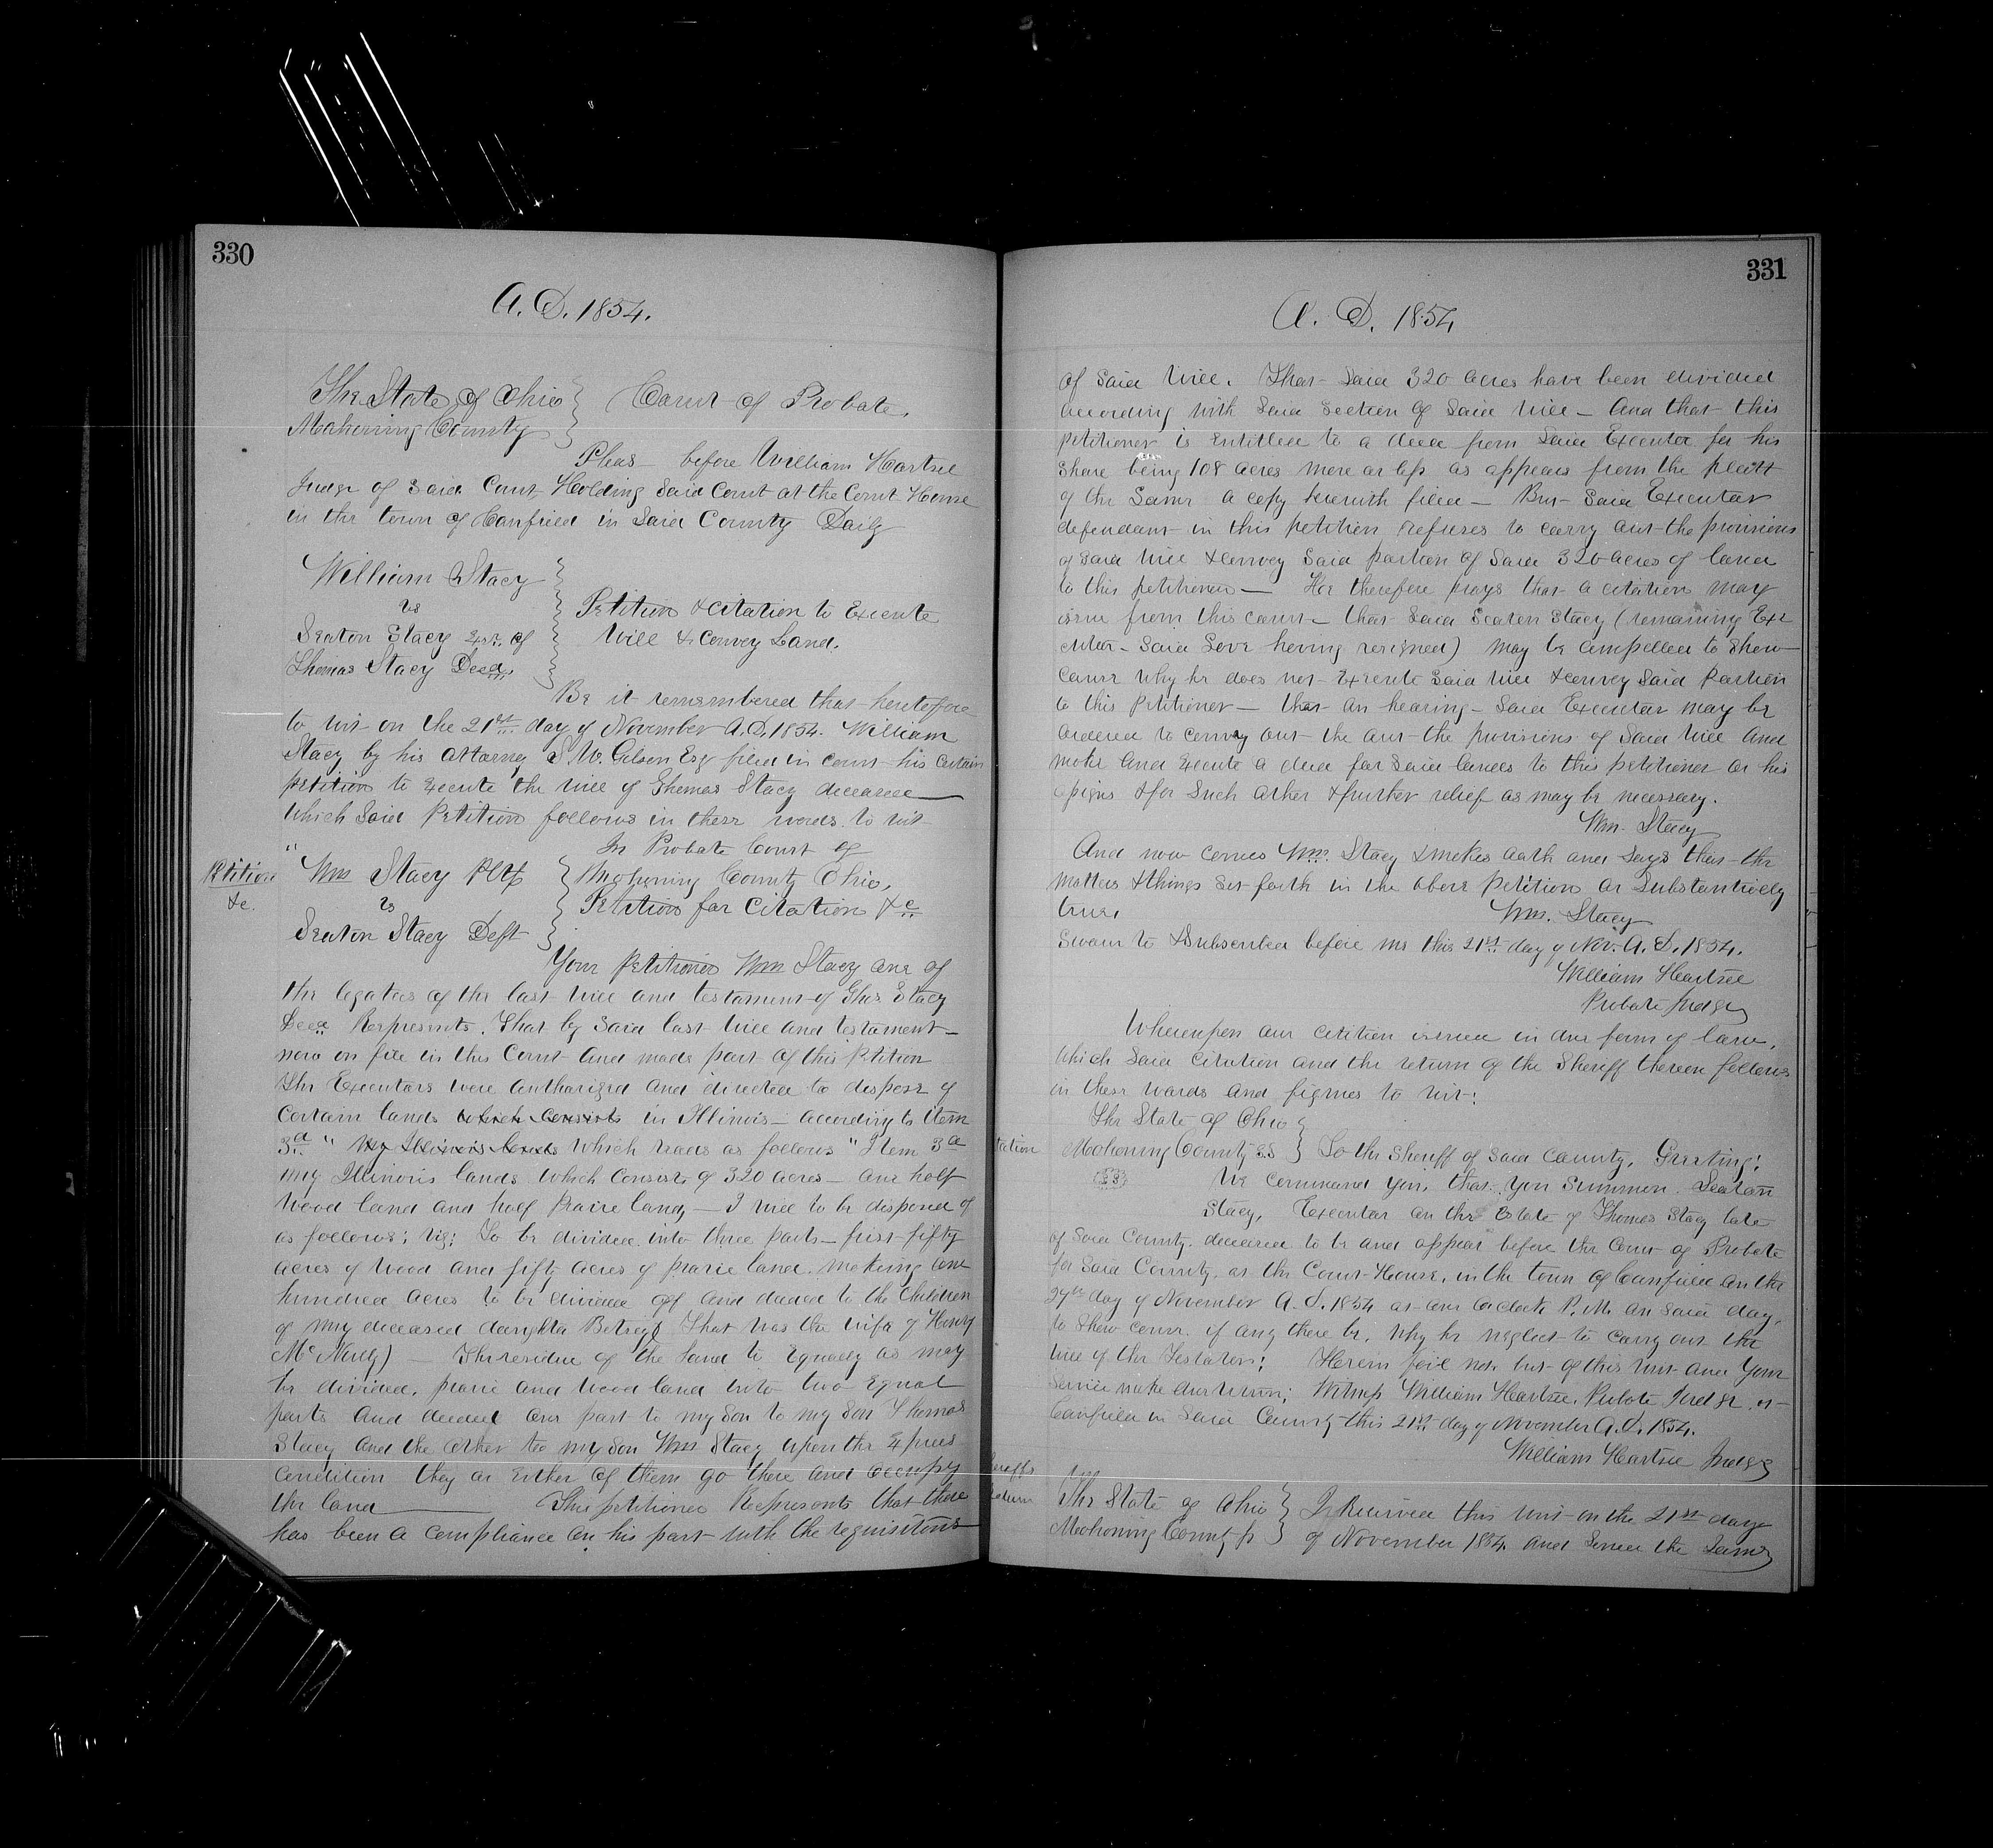 330
A. D. 1854.
The State of Ohio } Court of Probate,
Mahoning County }
Pleas before William Hartsel
Judge of Said Court Holding Said Court at the Court House
in the town of Canfield in Said County Daily
William Stacy
vs
Seaton Stacy Exr. of
Thomas Stacy Decd.
Petition & Citation to Execute
Will & Convey Land.
Be it remembered that heretofore
to wit on the 21st day of November A.D. 1854. William
Stacy by his attorney S. W. Gilson Esq filed in court his certain
petition to Execute the will of Thomas Stacy deceased
Which Said Petition follows in these words to wit
Petition
&c.
" Wm Stacy Pltf
vs
Seaton Stacy Deft
In Probate Court of
Mahoning County Ohio,
Petition for Citation &c
Your Petitioner Wm Stacy one of
the legatees of the last will and testament of Thos Stacy
Decd Represents. That by Said last will and testament
now on file in this Court and made part of this Petition
The Executors were authorized and directed to dispose of
Certain lands which consists in Illinois according to item
3d " My Illinois lands Which reads as follows " Item 3d
My Illinois lands which Consists of 320 acres — one half
Wood land and half Praire land, — I will to be disposed of
as follows; viz: To be divided into three parts — first fifty
acres of Wood and fifty acres of prarie land. making one
hundred acres to be divided off and deeded to the Children
of my deceased daughter Betsey (That was the wife of Henry
McNauly) — The residue of the land to Equally as may
be divided. prarie and Wood land into two Equal
parts and deeded one part to my Son to my Son Thomas
Stacy and the other too my Son Wm Stacy upon the Epress
Condition they or Either of them go there and occupy
the land — This petitioner Represents that there
has been a compliance on his part with the requisitions
331
A. D. 1854
of Said Will. That Said 320 acres have been divided
according with Said Section of Said Will — And that this
petitioner is Entitled to a deed from Said Executor for his
Share being 108 acres more or less as appears from the plat
of the Same a copy herewith filed — But Said Executor
defendant in this petition refuses to carry out the provisions
of Said Will & Convey Said portion of Said 320 acres of land
to this petitioner — He therefore prays that a citation may
issue from this court — that Said Seaton Stacy (remaining Exe
cutor — Said Love having resigned) may be Compelled to Show
Cause why he does not Execute Said Will & Convey Said Portion
to this Petitioner — that on hearing — Said Executor may be
ordered to Carry out the out the provisions of Said Will And
make And Execute a deed for Said lands to this petitioner or his
assigns & for Such other & further relief as may be necessary.
Wm. Stacy
And now comes Wm. Stacy & makes oath and Says that the
matters & things Set forth in the above Petition ar Substantively
true,
Wm. Stacy
Sworn to & Subscribed before me this 21st day of Nov. A.D. 1854.
William Hartsel
Probate Judge
Whereupon our citation issued in due form of law,
Which Said Citation and the return of the Sheriff thereon follows
in these words and figures to wit:
tation
The State of Ohio }
Mahoning County SS } To the Sheriff of Said County, Greeting:
We command you, that you Summon Seaton
Stacy, Executor on the Estate of Thomas Stacy late
of Said County. deceased to be and appear before the Court of Probate
for Said County. at the Court House, in the town of Canfield on the
29th day of November A.D. 1854 at one oclock P.M. on Said day,
to Show cause. if any there be, Why he neglect to carry out the
Will of the Testator; Herein fail not, but of this writ and Your
Service make due return; Witness William Hartsel, Probate Judge at
Canfield in Said County this 21st day of November A.D. 1854.
William Hartsel Judge
The State of Ohio }
Mahoning County ss }
I Received this writ on the 21st day
of November 1854. and Served the Same